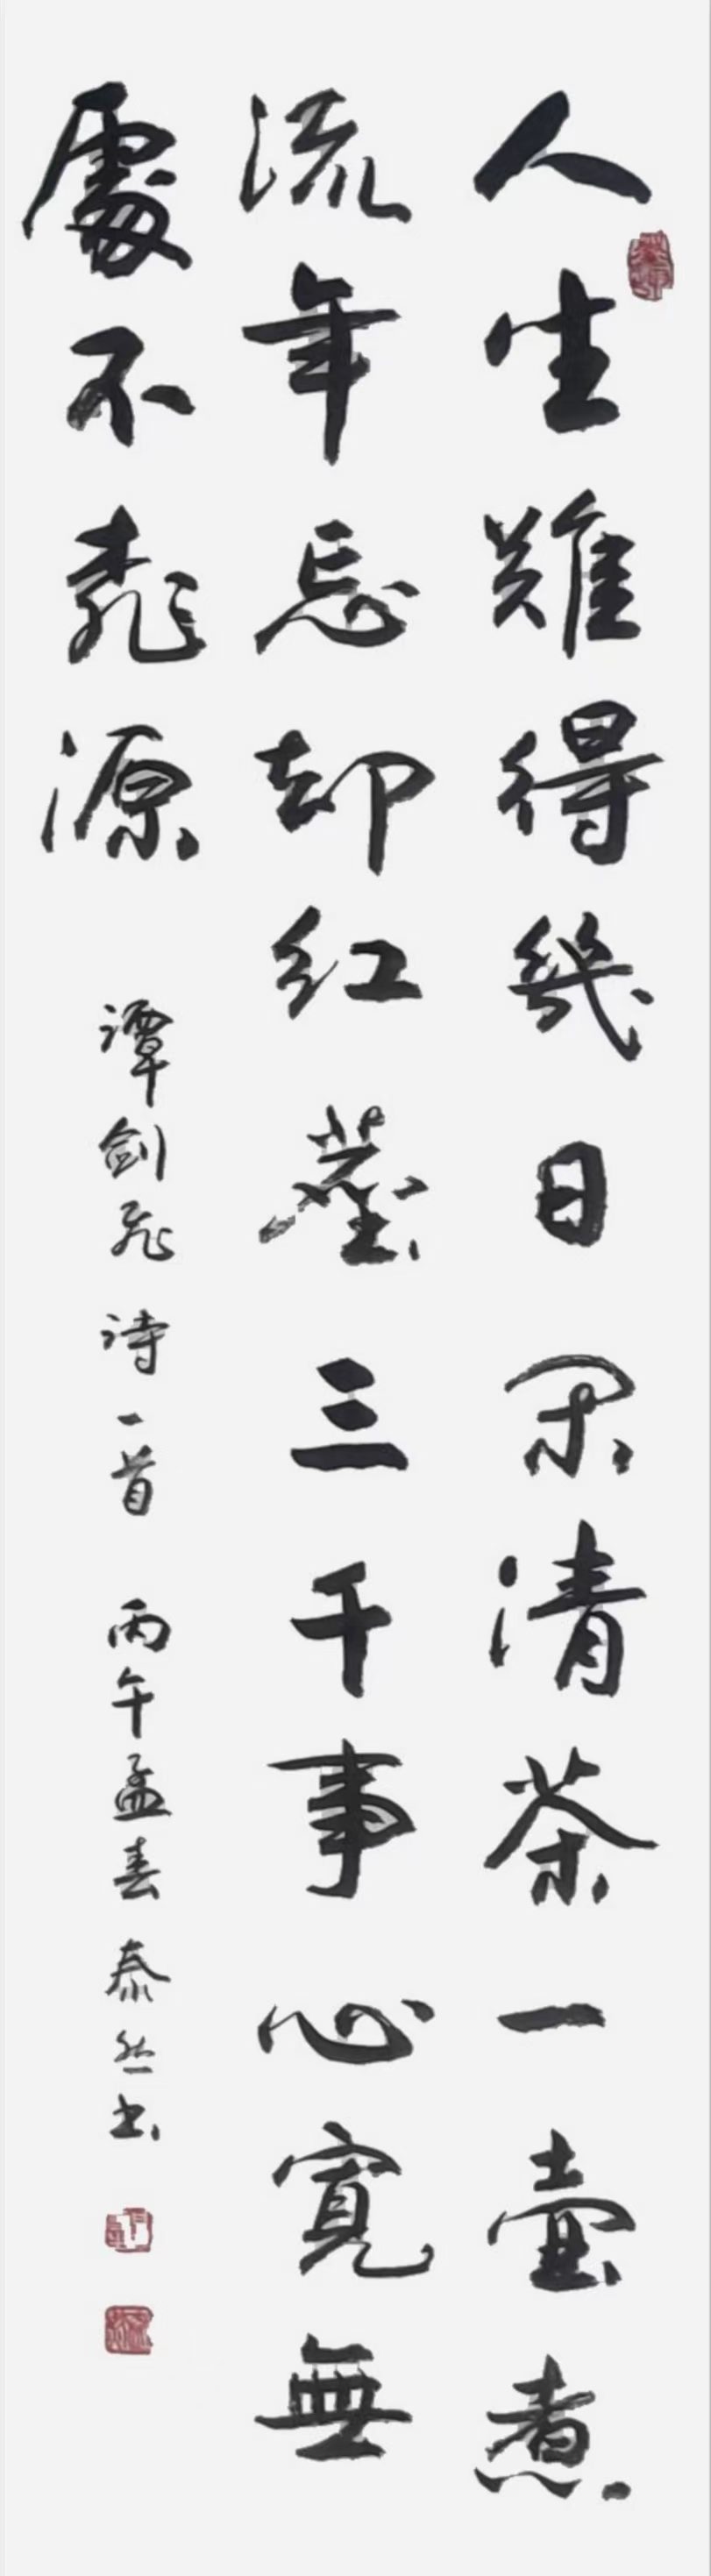 人生難得幾日閑清茶一壺煮
流年忘却红塵三千事心寬無
處不桃源
谭剑飞诗一首 丙午孟春 泰然书